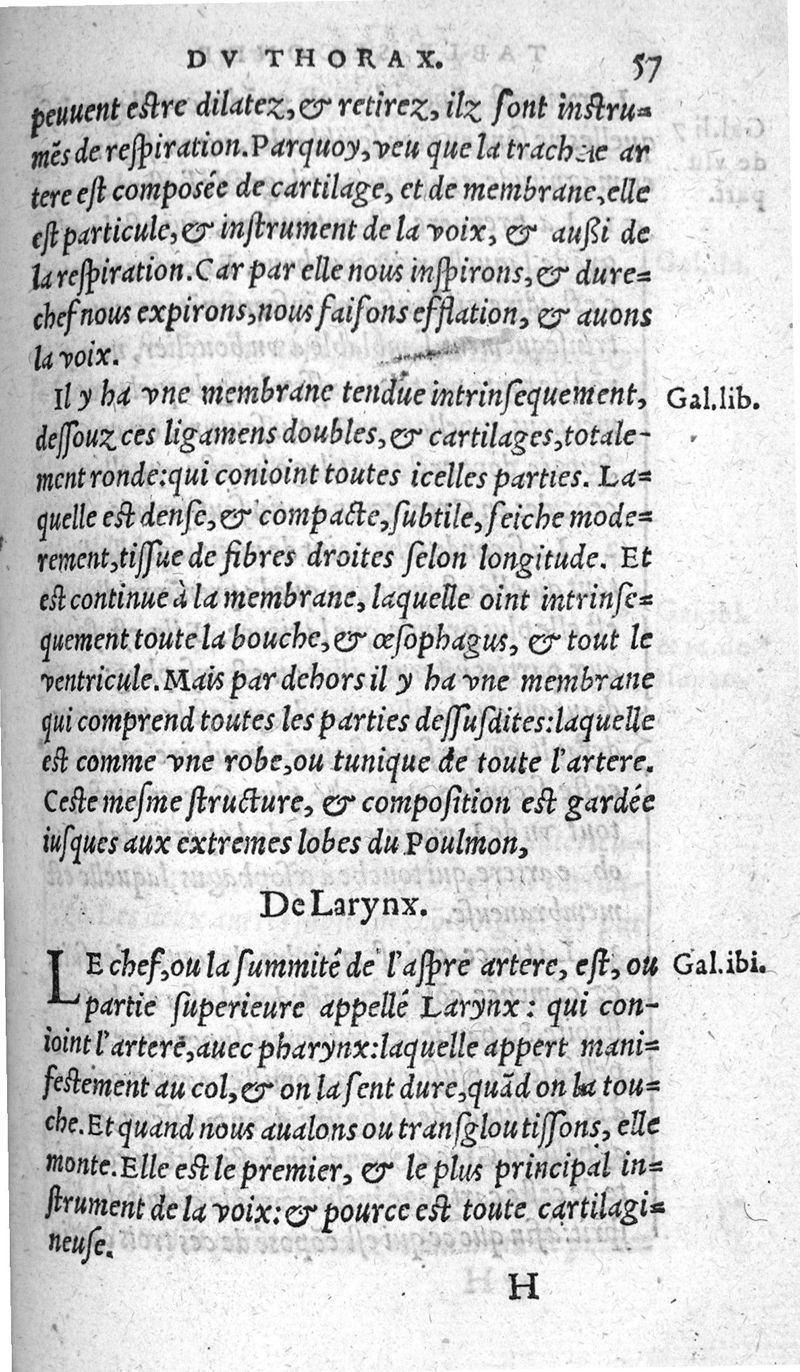 DV THORAX. 57
peuuent estre dilatez, & retirez, ilz sont instru-
mẽs de respiration. Parquoy, veu que la trachee ar
tere est composée de cartilage, et de membrane, elle
est particule, & instrument de la voix, & außi de
la respiration. Car par elle nous inspirons, & dure-
chef nous expirons, nous faisons efflation, & auons
la voix.
Il y ha vne membrane tendue intrinsequement, Gal.lib.
dessouz ces ligamens doubles, & cartilages, totale-
ment ronde: qui conioint toutes icelles parties. La-
quelle est dense, & compacte, subtile, seiche mode-
rement, tissue de fibres droites selon longitude. Et
est continue à la membrane, laquelle oint intrinse-
quement toute la bouche, & œsophagus, & tout le
ventricule. Mais par dehors il y ha vne membrane
qui comprend toutes les parties dessusdites: laquelle
est comme vne robe, ou tunique de toute l'artere.
Ceste mesme structure, & composition est gardée
iusques aux extremes lobes du Poulmon,
De Larynx.
LE chef, ou la summité de l'aspre artere, est, ou Gal.ibi.
partie superieure appellé Larynx: qui con-
ioint l'arterē, auec pharynx: laquelle appert mani-
festement au col, & on la sent dure, quãd on la tou-
che. Et quand nous aualons ou transgloutissons, elle
monte. Elle est le premier, & le plus principal in-
strument de la voix: & pource est toute cartilagi-
neuse.
H